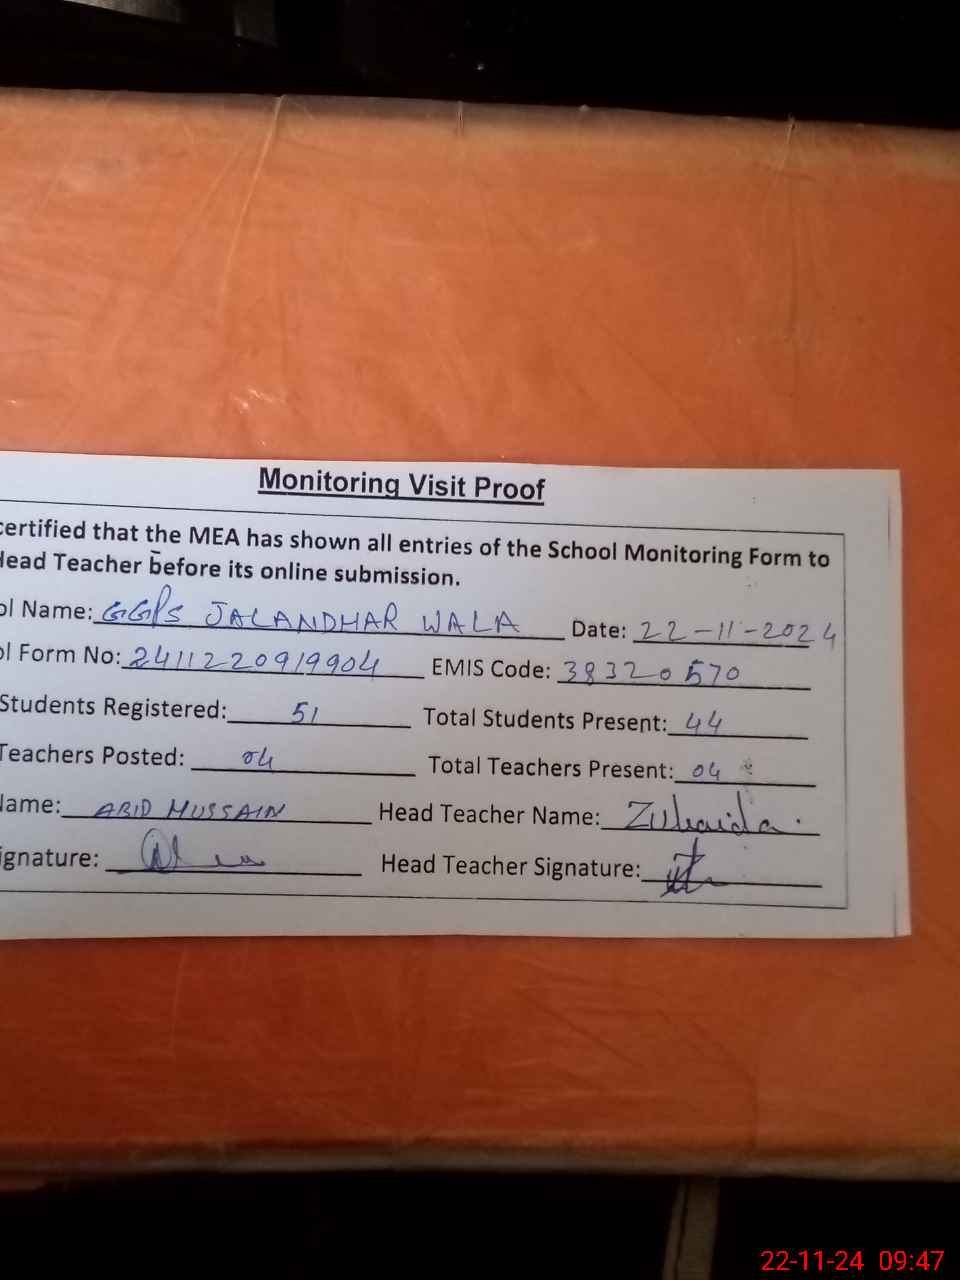 Monitoring Visit Proof
certified that the MEA has shown all entries of the School Monitoring Form to
Head Teacher before its online submission.
ol Name: GGPS JALANDHAR WALA Date: 22-11-2024
ol Form No: 2411220919904 EMIS Code: 38320570
Students Registered: 51 Total Students Present: 44
Teachers Posted: 04 Total Teachers Present: 04
Name: ABID HUSSAIN Head Teacher Name: Zubaida.
ignature: Head Teacher Signature:
22-11-24 09:47